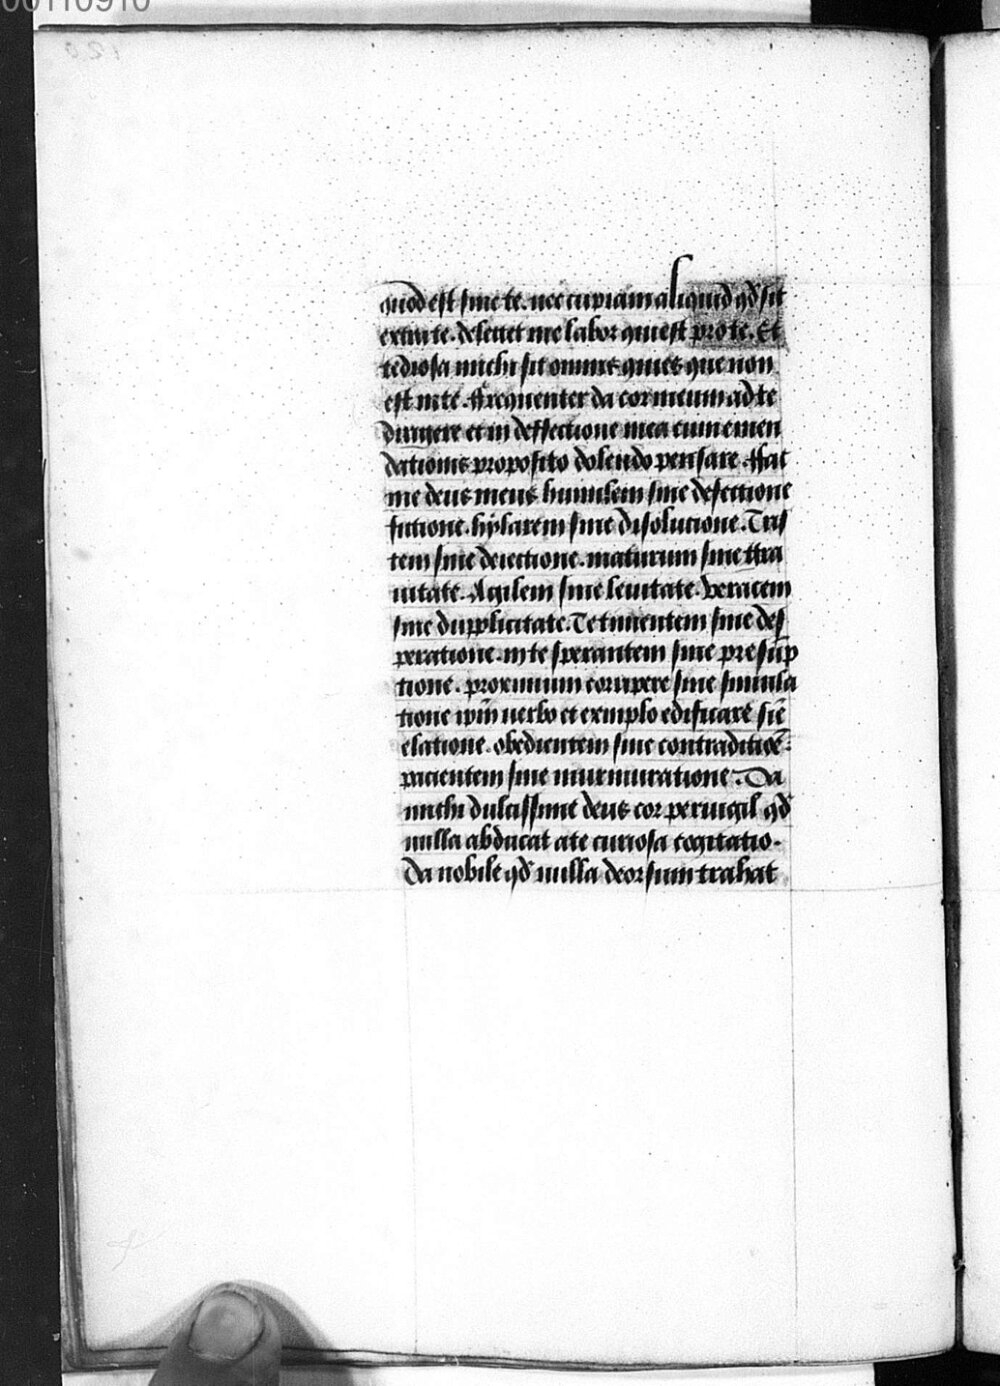 00110910
quod est sine te. nec cupiam aliquid qd̄ sit
extra te. delectet me labor qui est pro te. Et
tediosa michi sit omnis quies que non
est in te. ffrequenter da cor meum ad te
dirigere et in deffectione mea cum emen
dationis proposito dolendo pensare. ffac
me deus meus humilem sine defectione
fictione. hylarem sine disolucione. Tris
tem sine deiectione. maturum sine gra
uitate. Agilem sine leuitate. veracem
sine dupplicitate. Te timentem sine des
peratione. in te sperantem sine presūp
tione. proximum corripere sine simula
tione ip̄m uerbo et exemplo edificare siē
elatione. obedientem sine contraditiōe
pacientem sine murmuratione. Da
michi dulcissime deus cor peruigil qd̄
nulla abducat a te curiosa cogitatio.
Da nobile qd̄ nulla deorsum trahat